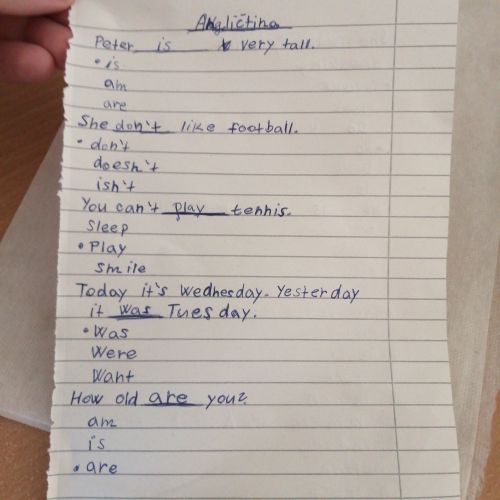 Angličtina
Peter is very tall.
• is
am
are
She don't like football.
• don't
doesn't
isn't
You can't play tennis.
Sleep
• Play
Smile
Today it's Wednesday. Yesterday
it was Tuesday.
• Was
Were
Want
How old are you?
am
is
• are